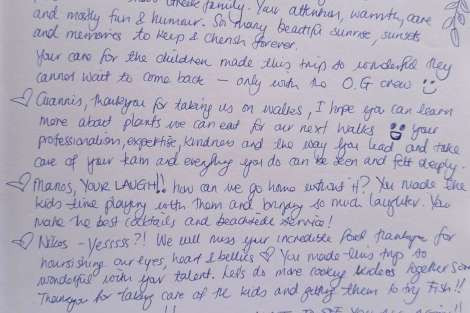 family. Your attention, warmth, care
and mostly fun & humour. So many beautiful sunrise, sunsets
and memories to keep & cherish forever.
Your care for the children made this trip so wonderful they
cannot wait to come back - only with the O.G crew
Giannis, thankyou for taking us on walks, I hope you can learn
more about plants we can eat for our next walks Your
professionalism, expertise, kindness and the way you lead and take
care of your team and everything you do can be seen and felt deeply.
Manos, YOUR LAUGH!! how can we go home without it? You made the
kids time playing with them and bringing so much laughter. You
make the best cocktails and beachside service!
Nikos - Yesssss?! We will miss your incredible food thankyou for
nourishing our eyes, heart & bellies You made this trip so
wonderful with your talent. Lets do more cooking videos together soon
Thankyou for taking care of the kids and getting them to try Fish!!